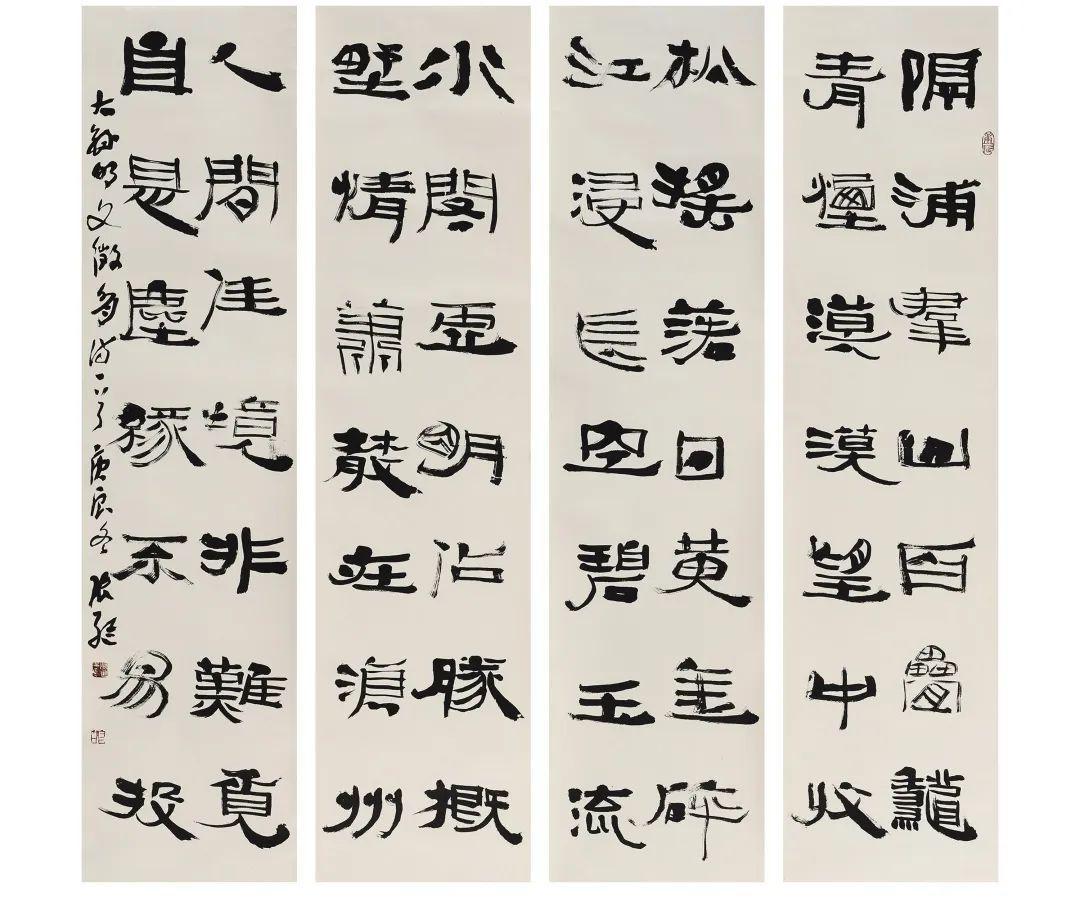 隔浦羣山百疊龝
青煙漠漠望中收
松搖落日黃金碎
江浸長空碧玉流
水閣虛明佔勝概
野情蕭散在滄州
人間佳境非難覓
自是塵緣不易投
右錄明文徵明詩一首庚辰冬張繼